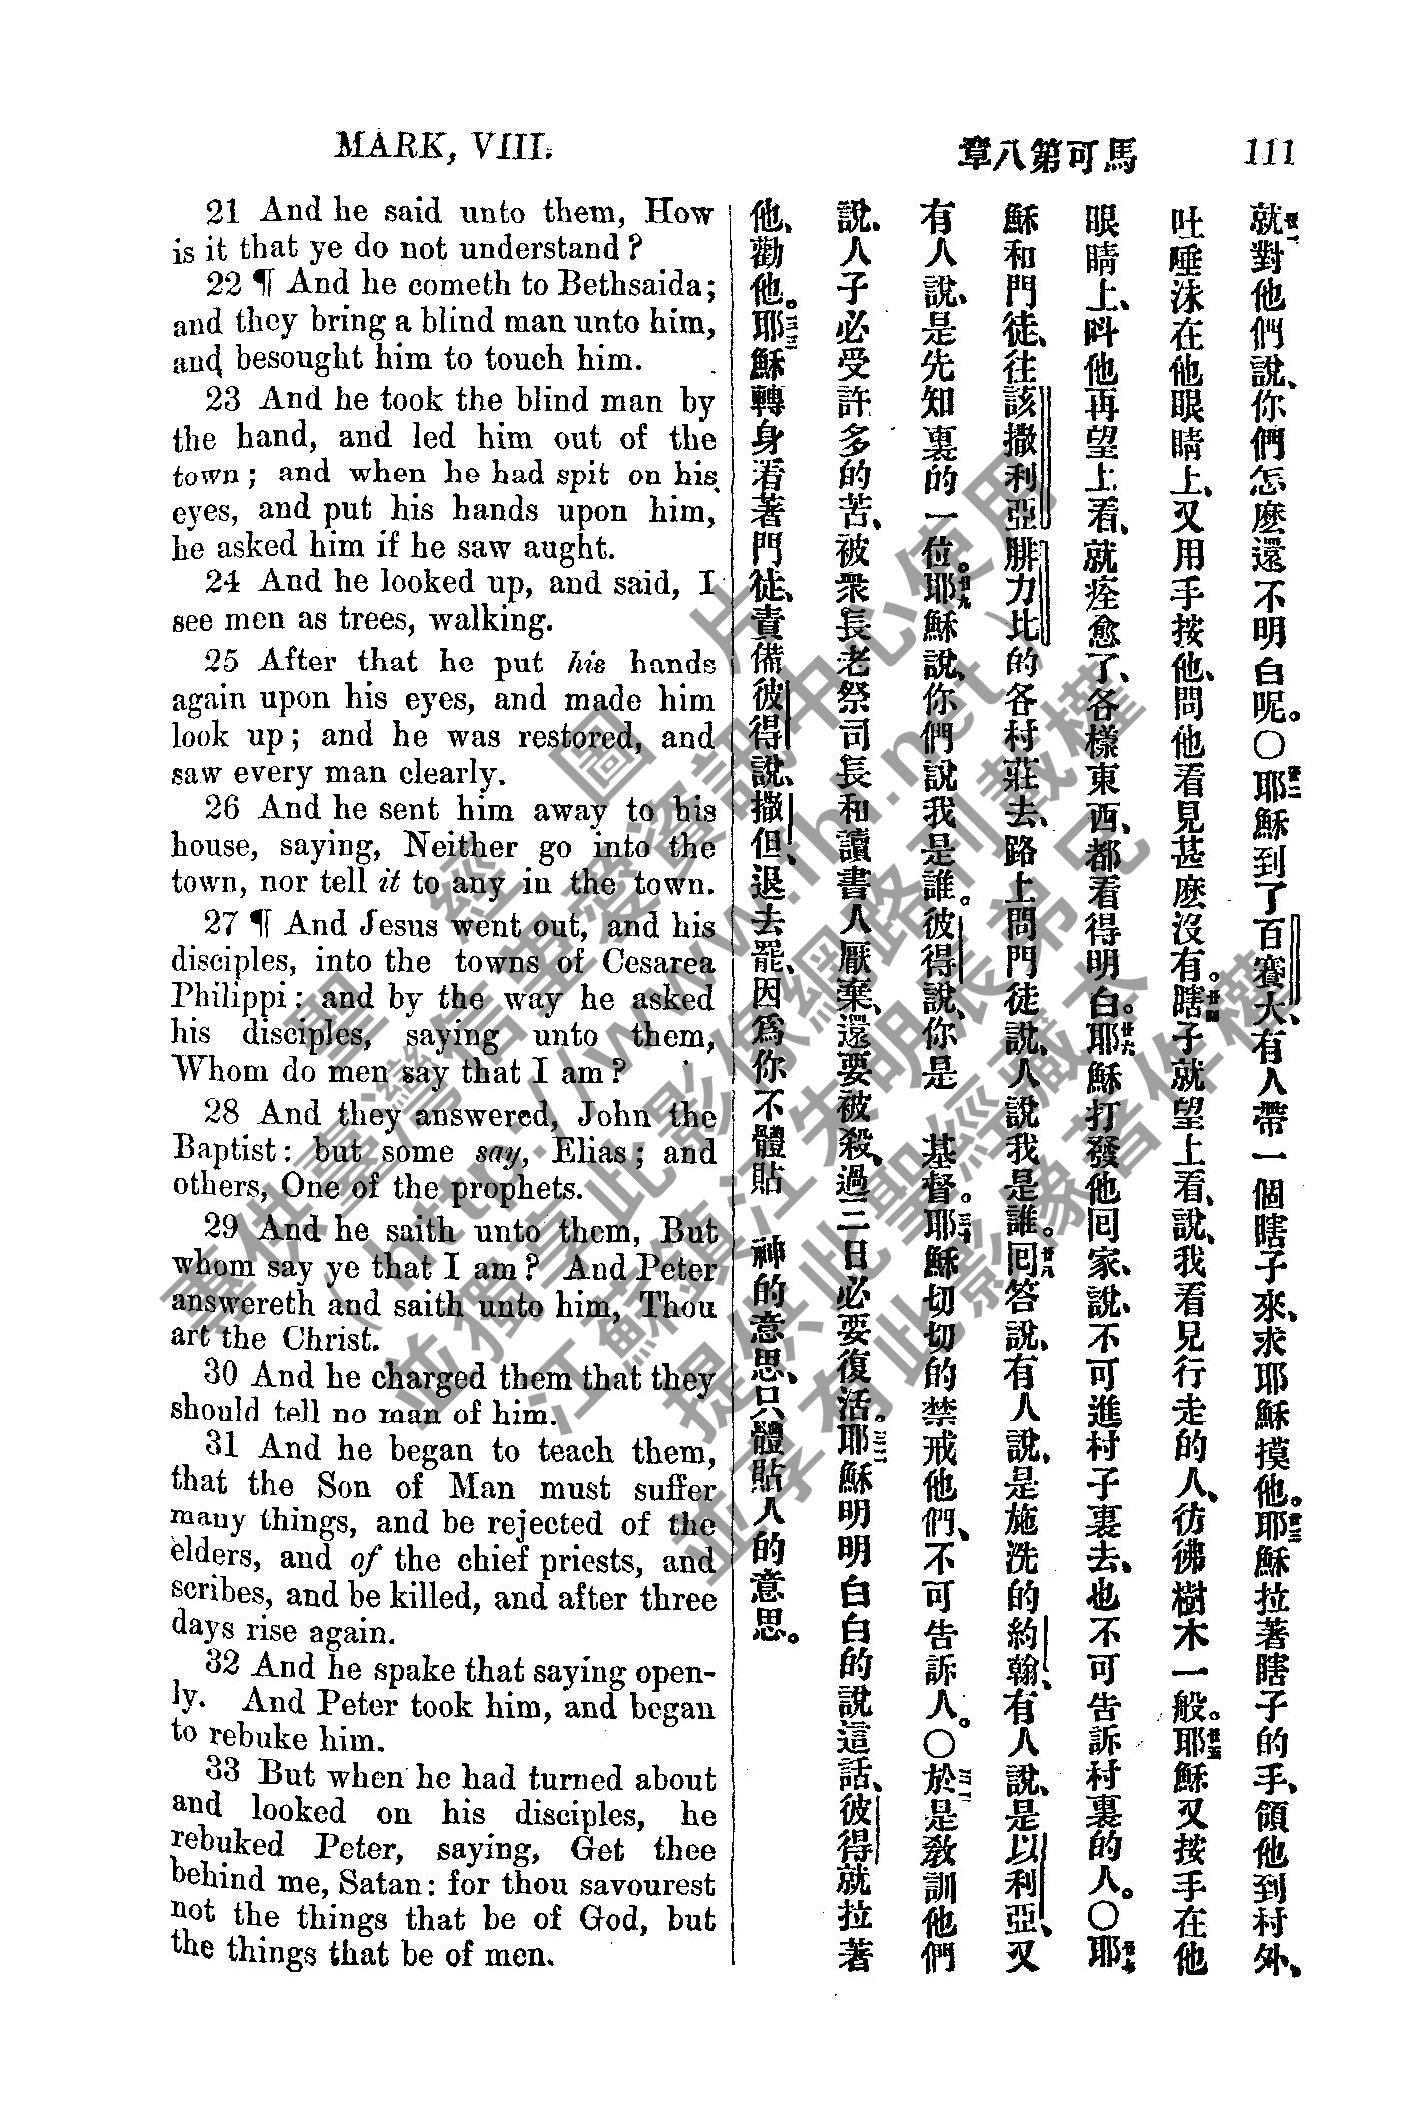 MARK, VIII.
馬可第八章
111
21 And he said unto them, How
is it that ye do not understand?
22 ¶ And he cometh to Bethsaida;
and they bring a blind man unto him,
and besought him to touch him.
23 And he took the blind man by
the hand, and led him out of the
town; and when he had spit on his
eyes, and put his hands upon him,
he asked him if he saw aught.
24 And he looked up, and said, I
see men as trees, walking.
25 After that he put his hands
again upon his eyes, and made him
look up; and he was restored, and
saw every man clearly.
26 And he sent him away to his
house, saying, Neither go into the
town, nor tell it to any in the town.
27 ¶ And Jesus went out, and his
disciples, into the towns of Cesarea
Philippi: and by the way he asked
his disciples, saying unto them,
Whom do men say that I am?
28 And they answered, John the
Baptist: but some say, Elias; and
others, One of the prophets.
29 And he saith unto them, But
whom say ye that I am? And Peter
answereth and saith unto him, Thou
art the Christ.
30 And he charged them that they
should tell no man of him.
31 And he began to teach them,
that the Son of Man must suffer
many things, and be rejected of the
elders, and of the chief priests, and
scribes, and be killed, and after three
days rise again.
32 And he spake that saying open-
ly. And Peter took him, and began
to rebuke him.
33 But when he had turned about
and looked on his disciples, he
rebuked Peter, saying, Get thee
behind me, Satan: for thou savourest
not the things that be of God, but
the things that be of men.
就廿一對他們說、你們怎麽還不明白呢。〇耶廿二穌到了百賽大、有人帶一個瞎子來、求耶穌摸他。耶廿三穌拉著瞎子的手、領他到村外、
吐唾沫在他眼睛上、又用手按他、問他看見甚麽沒有。瞎廿四子就望上看、說、我看見行走的人、彷彿樹木一般。耶廿五穌又按手在他
眼睛上、呌他再望上看、就痊愈了、各樣東西、都看得明白。耶廿六穌打發他囘家、說、不可進村子裏去、也不可告訴村裏的人。〇耶廿七
穌和門徒、往該撒利亞腓力比的各村莊去、路上問門徒說、人說我是誰。囘廿八答說、有人說、是施洗的約翰、有人說、是以利亞、又
有人說、是先知裏的一位。耶廿九穌說、你們說我是誰。彼得說、你是 基督。耶三十穌切切的禁戒他們、不可告訴人。〇於三一是敎訓他們
說、人子必受許多的苦、被衆長老祭司長和讀書人厭棄、還要被殺、過三日必要復活。耶三二穌明明白白的說這話、彼得就拉著
他、勸他。耶三三穌轉身看著門徒、責備彼得說、撒但、退去罷、因爲你不體貼 神的意思、只體貼人的意思。
聖經圖片
責供臺灣信望愛資訊中心使用
(http://www.fhl.net)
並獨享此影像網路刊載權
江蘇鎮江朱明長弟兄
提供此聖經藏本
並享有此影像著作權